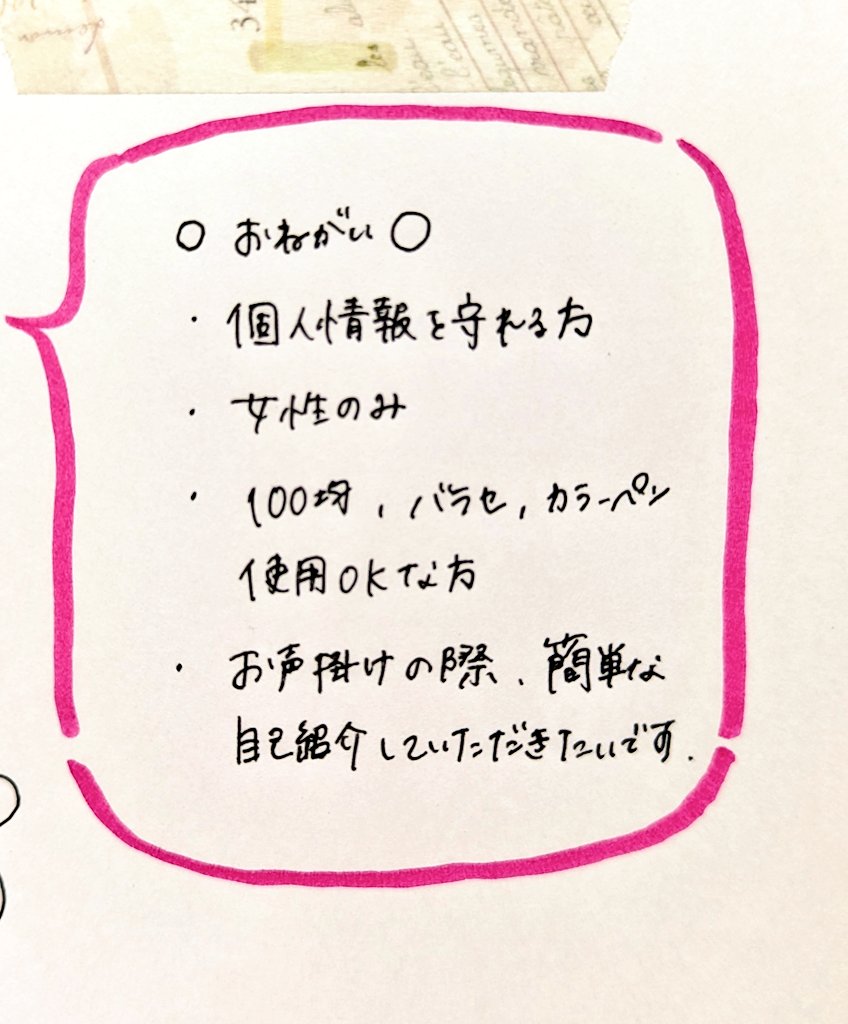 ○ おねがい ○
・ 個人情報を守れる方
・ 女性のみ
・ 100均、バラセ、カラーペン
使用OKな方
・ お声掛けの際、簡単な
自己紹介していただきたいです.